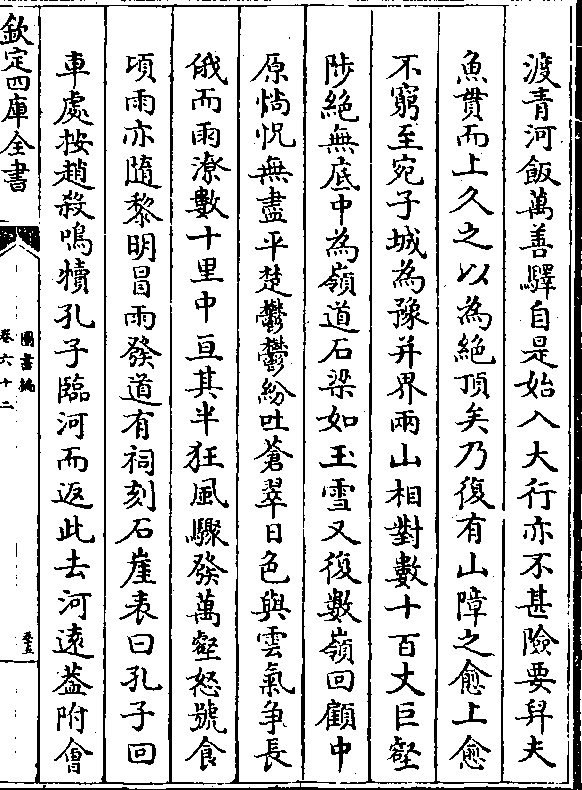 渡青河飯萬善驛自是始入大行亦不甚險要舁夫
魚貫而上久之以為絶頂矣乃復有山障之愈上愈
不窮至宛子城為豫并界兩山相對數十百丈巨壑
陟絶無底中為嶺道石梁如玉雪又復數嶺回顧中
原惝怳無盡平楚鬱鬱紛吐蒼翠日色與雲氣争長
俄而雨潦數十里中亘其半狂風驟發萬壑怒號食
頃雨亦隨黎明冒雨發道有祠刻石崖表曰孔子回
車處按趙殺鳴犢孔子臨河而返此去河遠葢附㑹
欽定四庫全書
圖書編
卷六十二